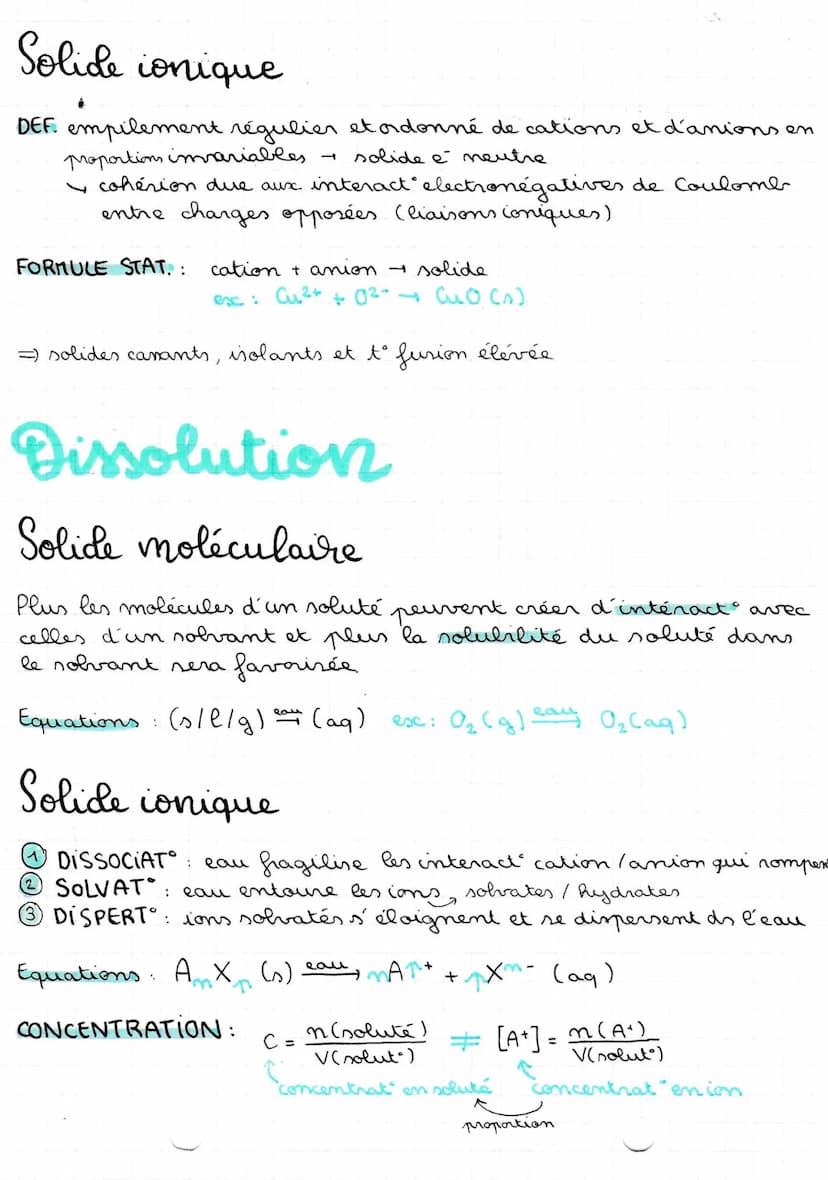 Solide ionique
DEF. empilement régulier et ordonné de cations et d'anions en
proportions invariables → solide é neutre
↳ cohésion due aux interact° electronégatives de Coulomb
entre charges opposées (liaisons ioniques)
FORMULE STAT. : cation + anion → solide
ex : Cu²⁺ + O²⁻ → CuO (s)
=> solides cassants, isolants et t° fusion élévée
Dissolution
Solide moléculaire
Plus les molécules d'un soluté peuvent créer d'intéract° avec
celles d'un solvant et plus la solubilité du soluté dans
le solvant sera favorisée
Equations : (s/l/g) eau ⇋ (aq) ex : O₂(g) eau → O₂(aq)
Solide ionique
① DISSOCIAT° : eau fragilise les interact° cation/anion qui rompent
② SOLVAT° : eau entoure les ions, solvatés / hydratés
③ DISPERT° : ions solvatés s'éloignent et se dispersent ds l'eau
Equations : AₙXₚ (s) eau → nAᵖ⁺ + pXⁿ⁻ (aq)
CONCENTRATION : C = n(soluté) / V(solut°) ≠ [A⁺] = n(A⁺) / V(solut°)
concentrat° en soluté concentrat° en ion
proportion